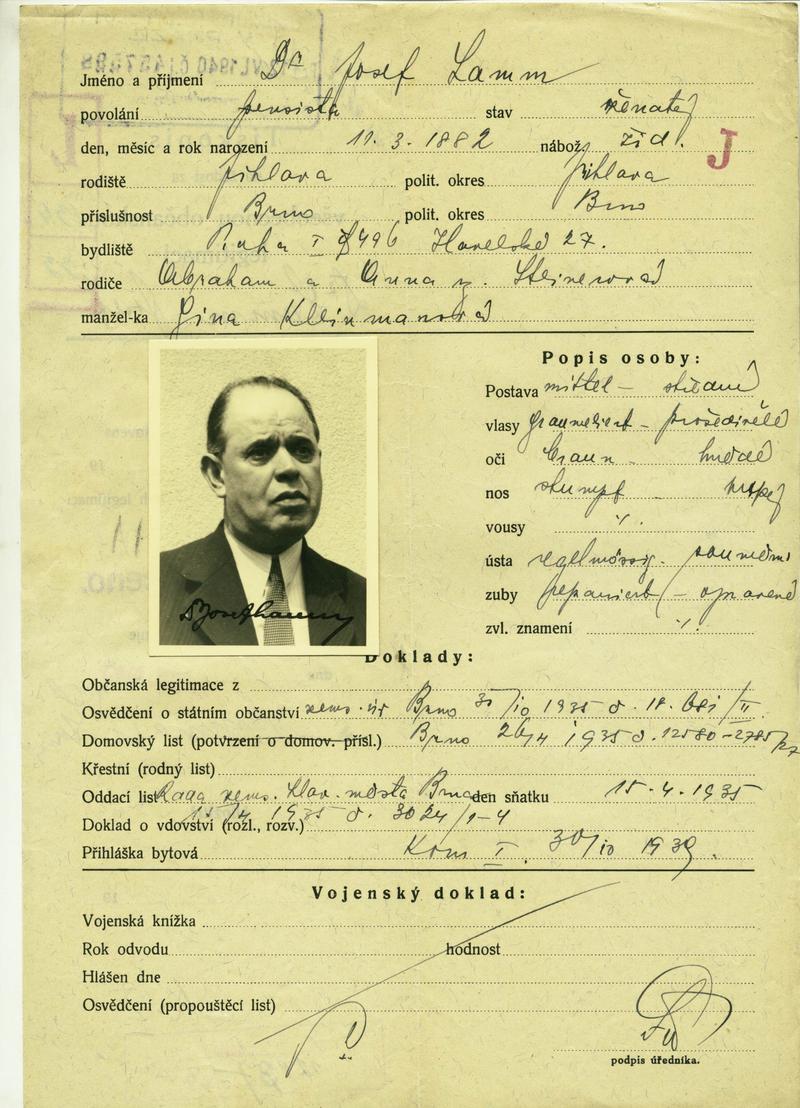 Jméno a příjmení Dr Josef Lamm
povolání pensista stav ženatý
den, měsíc a rok narození 11. 3. 1882 nábož. žid.
J
rodiště Jihlava polit. okres Jihlava
příslušnost Brno polit. okres Brno
bydliště Praha I 496 Havelská 27.
rodiče Abraham a Anna r. Steinerová
manžel-ka Gina Kleinmanová
Popis osoby:
Postava mittel – střední
vlasy graumeliert – prošedivělé
oči braun – hnědé
nos stumpf – tupý
vousy %
ústa regelmässig – souměrná
zuby repariert – opravené
zvl. znamení %
Doklady:
Občanská legitimace z
Osvědčení o státním občanství zems. úř Brno 31/10 1935 č. 18.
Domovský list (potvrzení o domov. přísl.) Brno 26/4 1935 č. 12580-2785/27
Křestní (rodný list)
Oddací list Rada zems. hlav. města Brna den sňatku 15. 4. 1935
15/4 1935 č. 3024/1-4
Doklad o vdovství (rozl., rozv.)
Přihláška bytová Kom I. 30/10 1939.
Vojenský doklad:
Vojenská knížka
Rok odvodu hodnost
Hlášen dne
Osvědčení (propouštěcí list)
podpis úředníka.